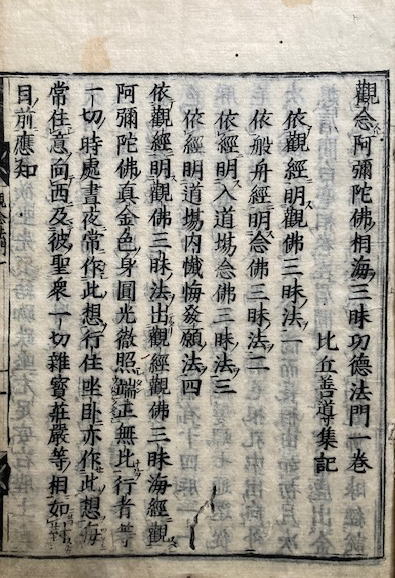 觀念阿彌陀佛相海三昧功德法門一卷
比丘善導集記
依觀經明觀佛三昧法一
依般舟經明念佛三昧法二
依經明入道場念佛三昧法三
依經明道場内懺悔發願法四
依觀經明觀佛三昧法出觀經觀佛三昧海經觀
阿彌陀佛真金色身圓光徹照端正無比行者等
一切時處晝夜常作此想行住坐卧亦作此想每
常住意向西及彼聖衆一切雜寶莊嚴等相如對
目前應知